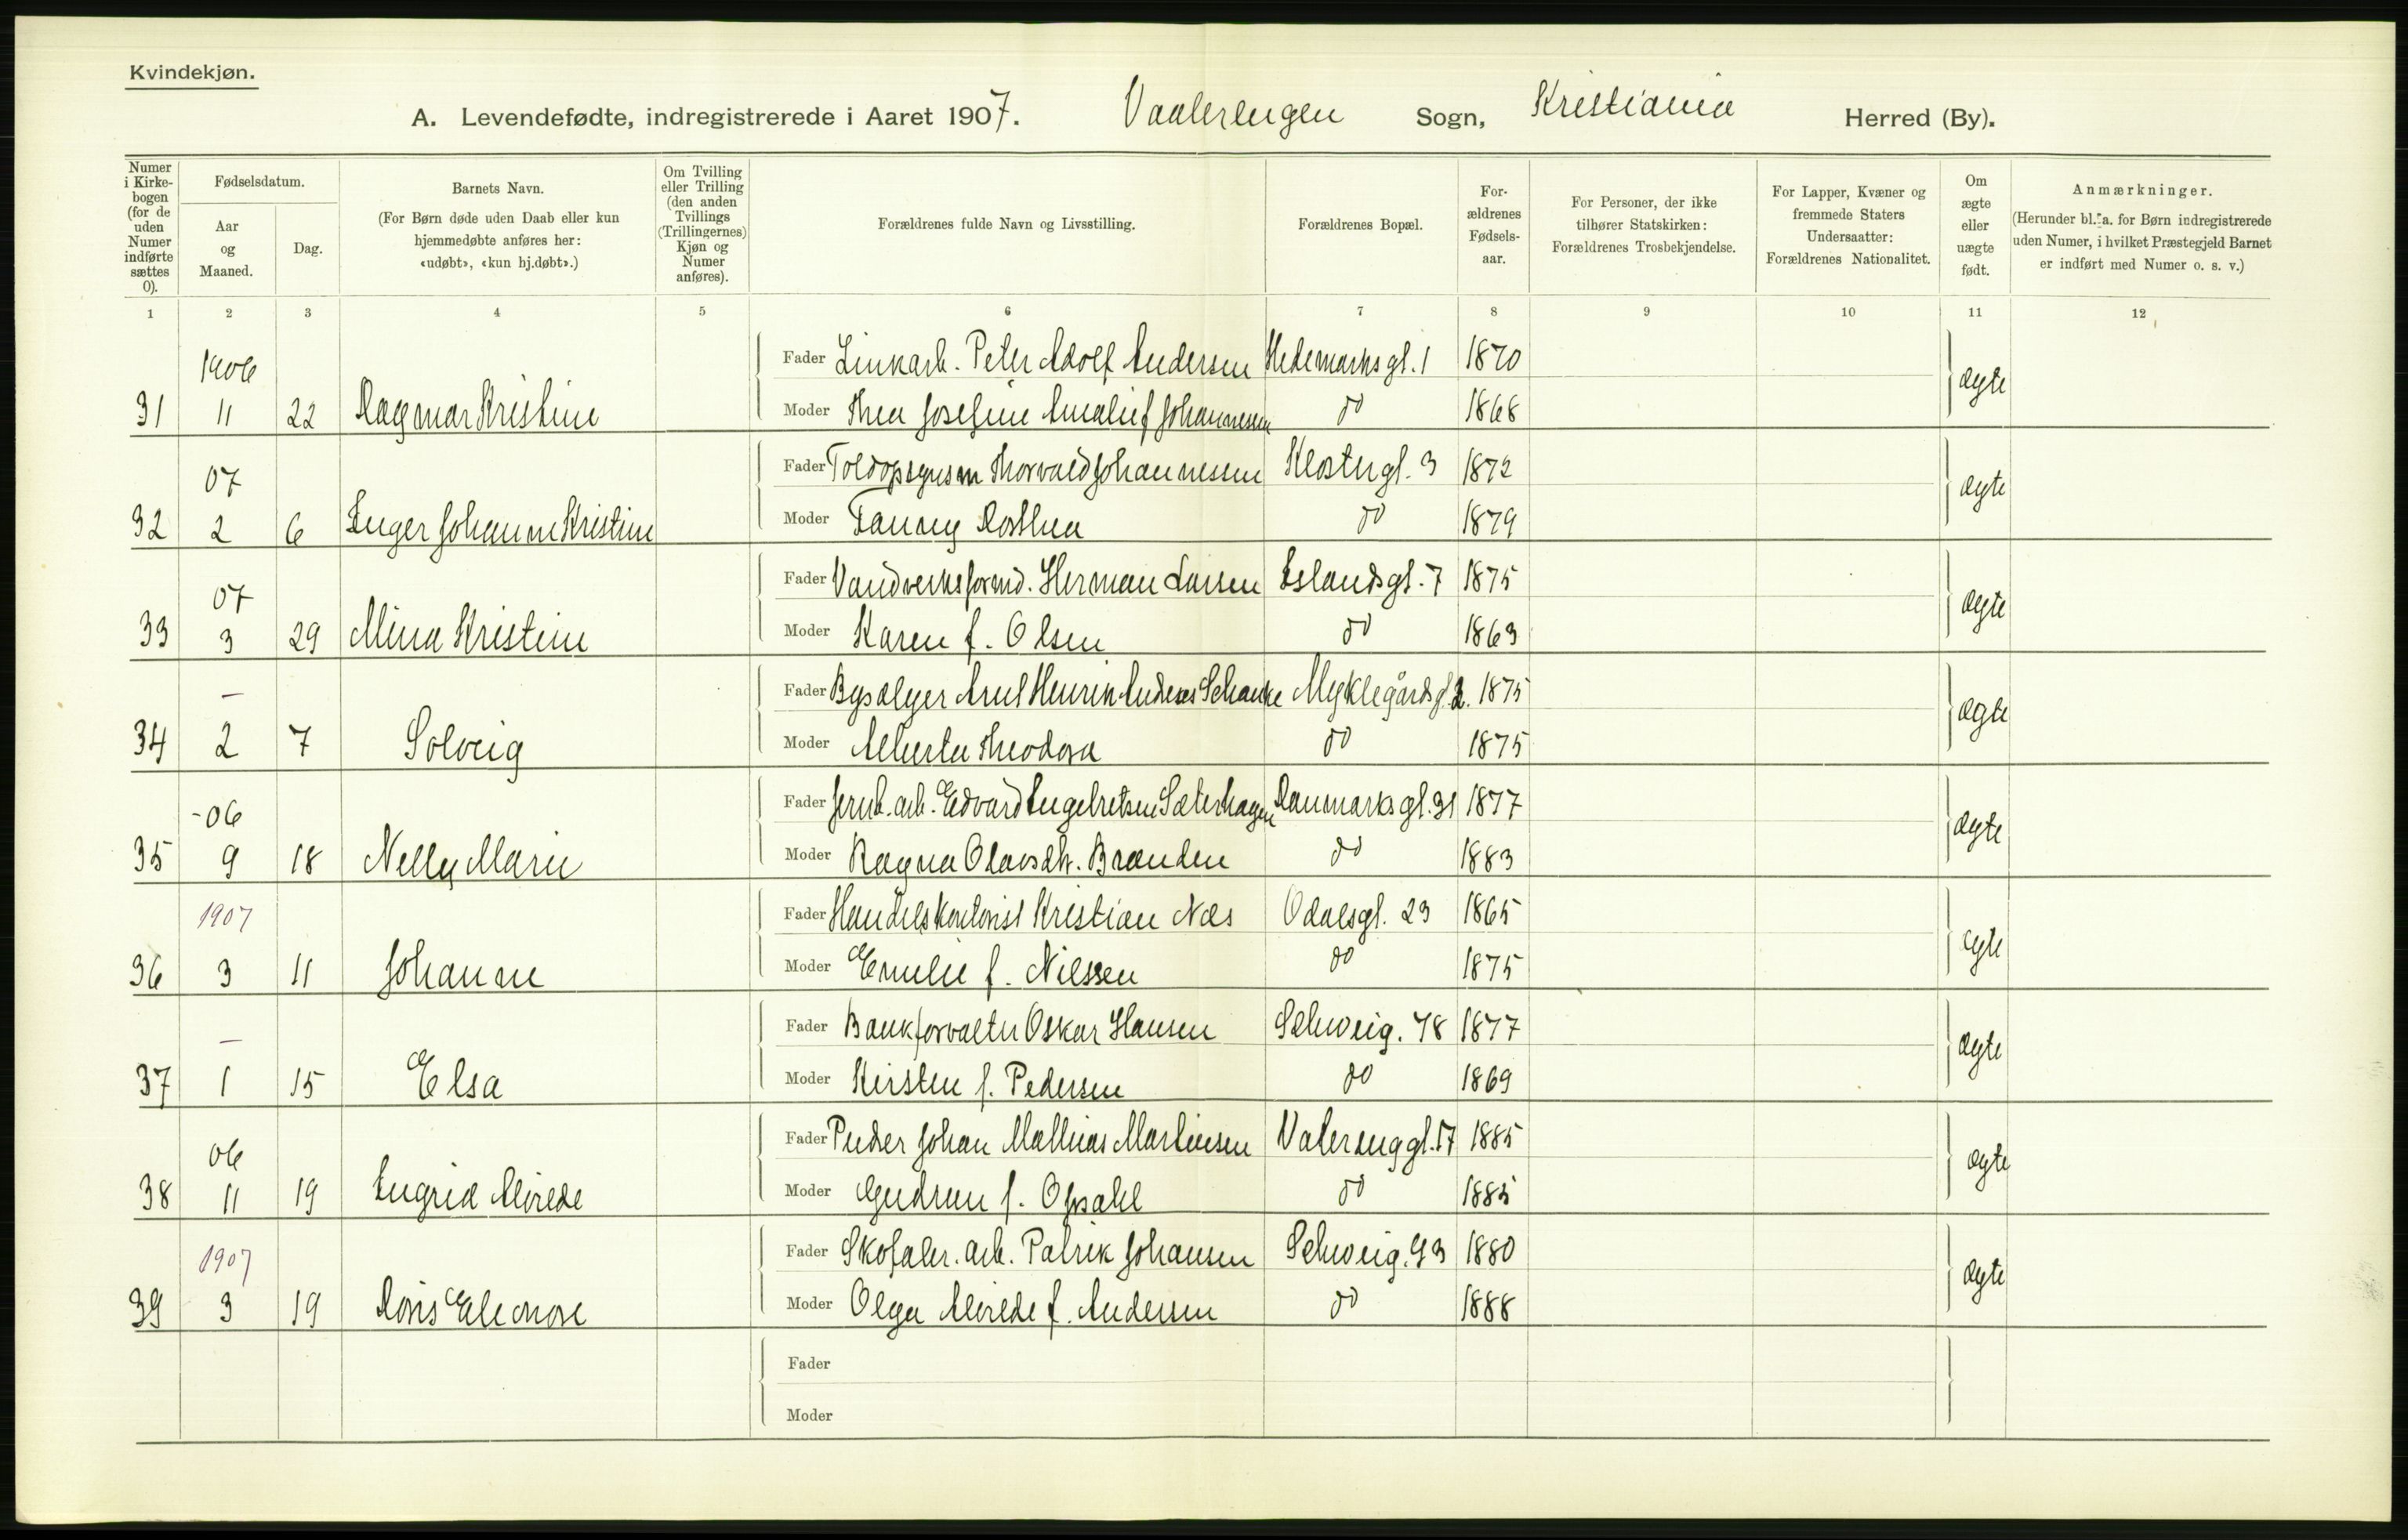 Kvindekjøn.
A. Levendefødte, indregistrerede i Aaret 1907. Vaalerengen Sogn, Kristiania Herred (By).
Numer i Kirkebogen (for de uden Numer indførte sættes 0).
Fødselsdatum.
Aar og Maaned.
Dag.
Barnets Navn.
(For Børn døde uden Daab eller kun hjemmedøbte anføres her: «udøbt», «kun hj.døbt».)
Om Tvilling eller Trilling (den anden Tvillings (Trillingernes) Kjøn og Numer anføres).
Forældrenes fulde Navn og Livsstilling.
Forældrenes Bopæl.
Forældrenes Fødselsaar.
For Personer, der ikke tilhører Statskirken: Forældrenes Trosbekjendelse.
For Lapper, Kvæner og fremmede Staters Undersaatter: Forældrenes Nationalitet.
Om ægte eller uægte født.
Anmærkninger.
(Herunder bl. a. for Børn indregistrerede uden Numer, i hvilket Præstegjeld Barnet er indført med Numer o. s. v.)
1 2 3 4 5 6 7 8 9 10 11 12
1906 Fader Linkarb. Peter Adolf Andersen Hedemarksgt. 1 1870 ægte
31 11 22 Dagmar Kristine Moder Thea Josefine Amalie f Johannessen do 1868
07 Fader Toldopsynsm Thorvald Johannessen Klostergt. 3 1872 ægte
32 2 6 Inger Johanne Kristine Moder Fanny Dorthea do 1879
07 Fader Vandverksformd. Herman Larsen Islandsgt. 7 1875 ægte
33 3 29 Mina Kristine Moder Karen f. Olsen do 1863
– Fader Bysælger Henrik Schanke Myklegårdsg. 2. 1875 ægte
34 2 7 Solveig Moder Alberta Theodora do 1875
-06 Fader Jernb. arb. Edvard Engebretsen Sæterhagen Danmarksgt. 31 1877 ægte
35 9 18 Nelly Marie Moder Ragna Olavsdtr. Brænden do 1883
1907 Fader Handelskontorist Kristian Næs Odalsgt. 23 1865 ægte
36 3 11 Johanne Moder Emilie f. Nielsen do 1875
– Fader Bankforvalter Oskar Hansen Schweig. 78 1877 ægte
37 1 15 Elsa Moder Kirsten f. Pedersen do 1869
06 Fader Pudser Johan Mathias Martinsen Valerenggt. 17 1885 ægte
38 11 19 Ingrid Alvilde Moder Gudrun f. Opsahl do 1885
1907 Fader Skofabr. arb. Patrik Johansen Schweig. 93 1880 ægte
39 3 19 Doris Eleonore Moder Olga Alvilde f. Andersen do 1888
Fader
Moder